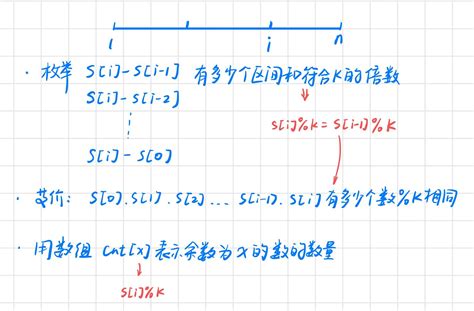 1 i n
· 枚举 S[i]-S[i-1] 有多少个区间和符合K的倍数
S[i]-S[i-2]
S[i]%K = S[i-1]%K
S[i]-S[0]
· 等价: S[0].S[1].S[2]...S[i-1].S[i]有多少个数%K相同
· 用数组 cnt[x] 表示余数为x的数的数量
S[i]%K